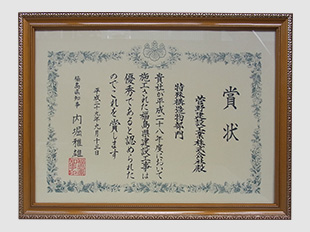 賞状
特殊構造物部門
菅野建設工業株式会社殿
貴社が平成二十八年度において
施工された福島県建設工事は
優秀であると認められた
のでこれを賞します
平成二十九年九月十三日
福島県知事 内堀雅雄